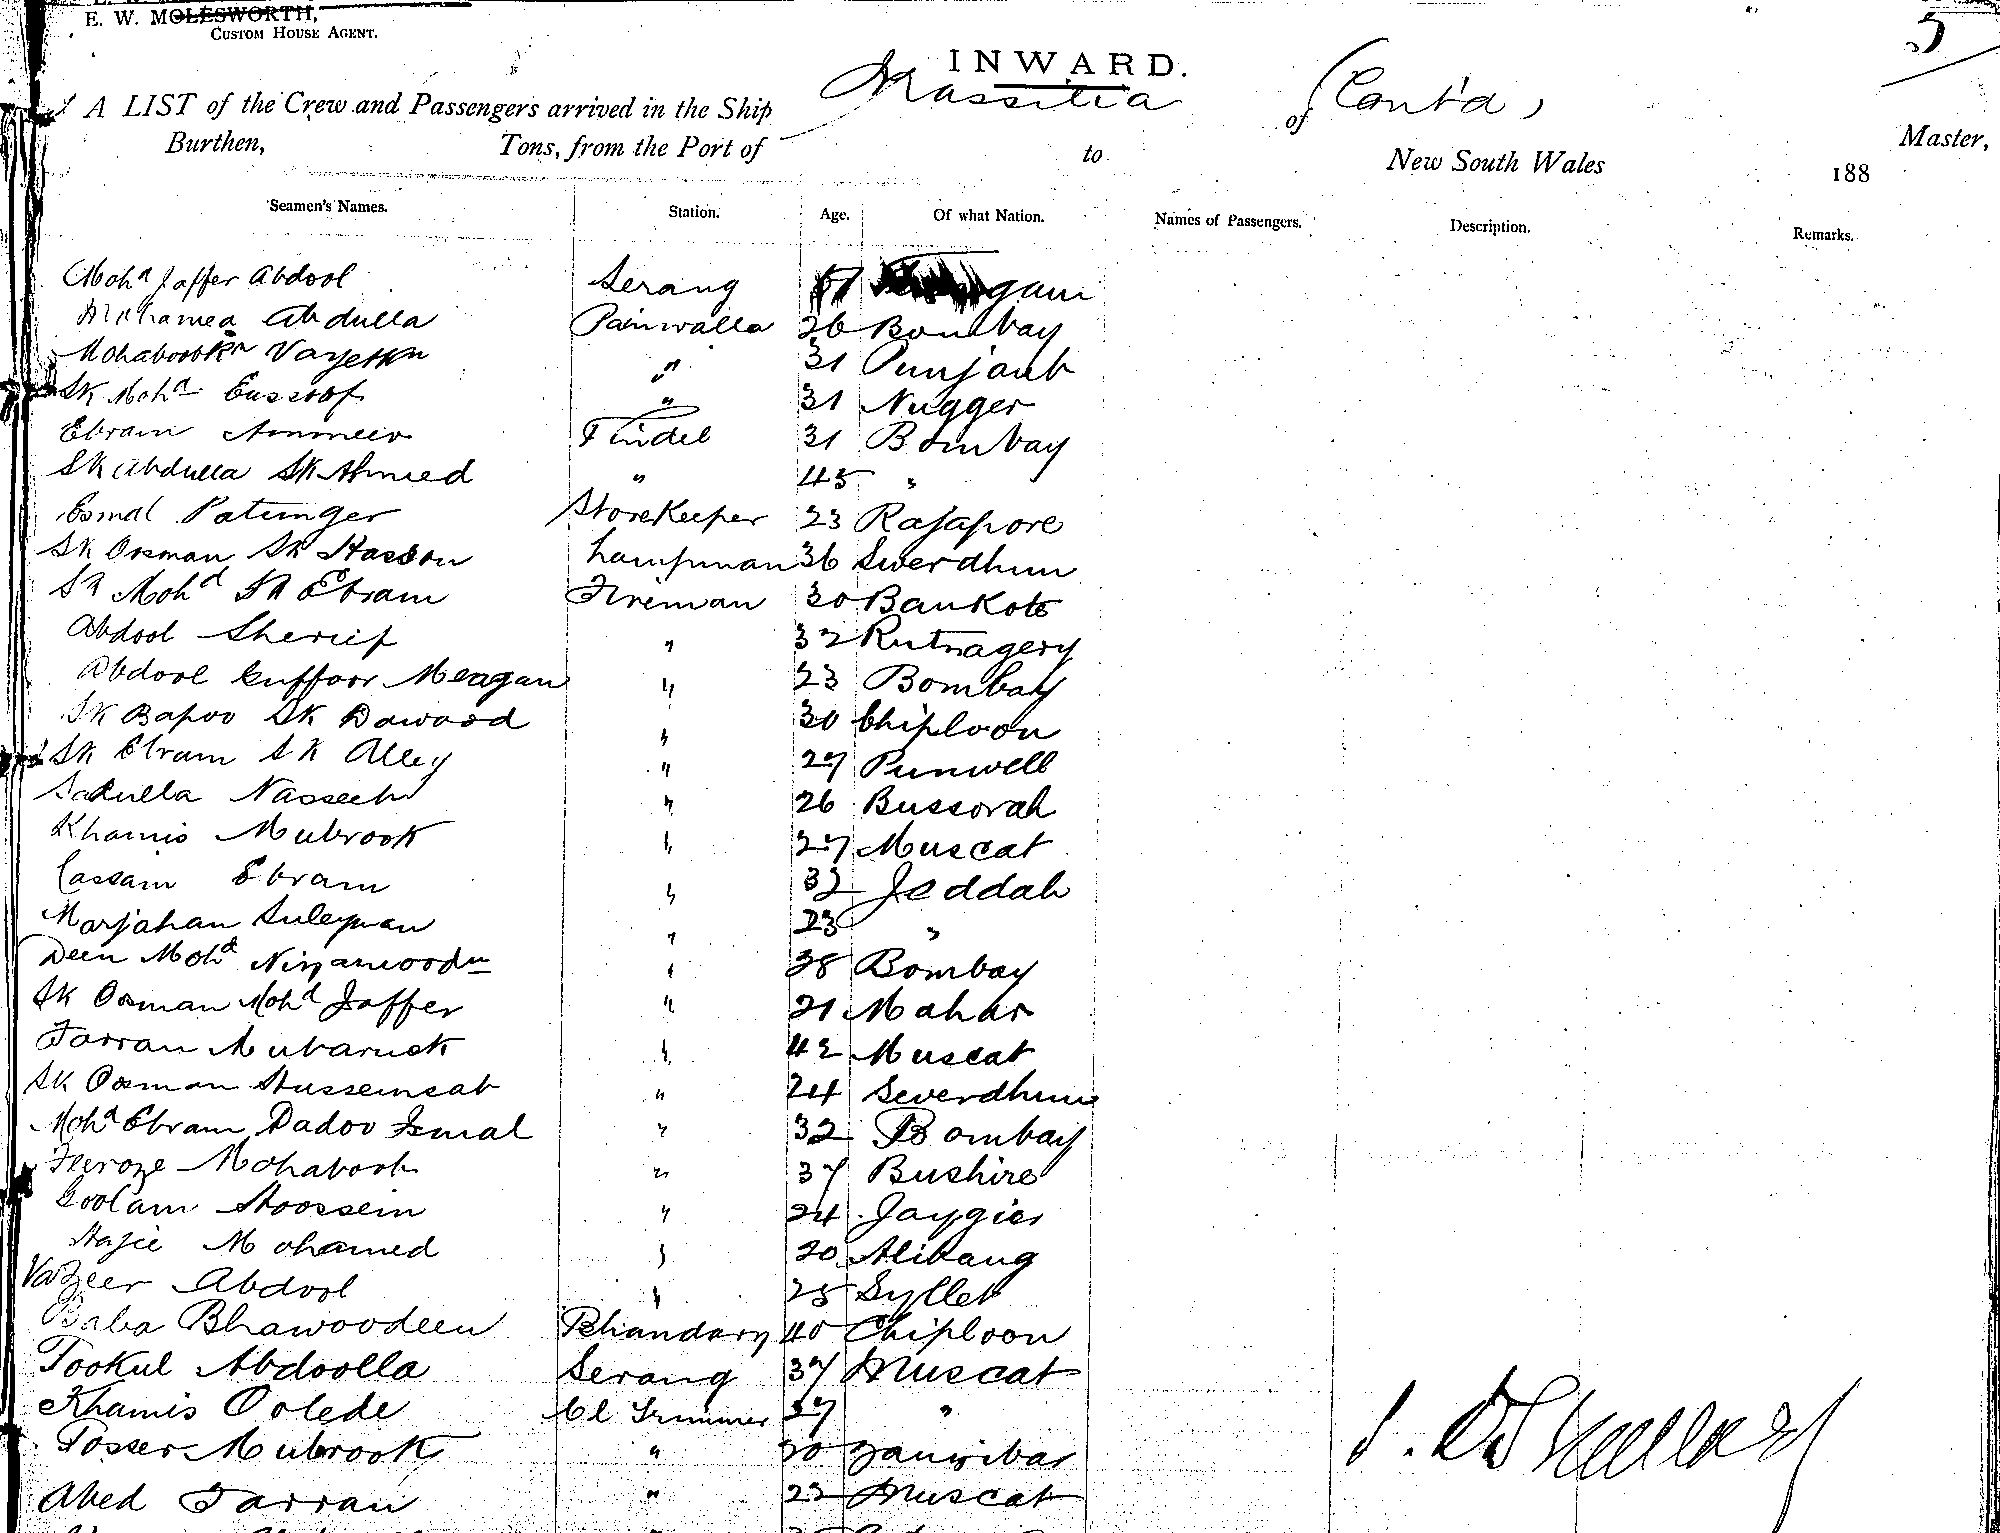 E. W. MOLESWORTH,
CUSTOM HOUSE AGENT.
5
INWARD.
A LIST of the Crew and Passengers arrived in the Ship Massilia of (Cont'd)
Master,
Burthen, Tons, from the Port of to New South Wales 188
Seamen's Names. Station. Age. Of what Nation. Names of Passengers. Description. Remarks.
Mohd Jaffer Abdool Serang
Mohamed Abdulla Painwalla 26 Bombay
" 31 Punjaub
SK Mohd Eussoof " 31 Nugger
Ebram Tindel 31 Bombay
SK Abdulla SK Ahmed " 45 "
Esmal Patunger Storekeeper 23 Rajapore
SK Osman SK Hasson Lampman 36 Severdhun
SK Mohd SK Ebram Fireman 30 Bankote
Abdool Sheriff " 32 Rutnagery
Abdool Guffoor Meagan " 23 Bombay
SK Bapoo SK Dawood " 30 Chiploon
SK Ebram SK Alley " 27 Punwell
Sadulla Nasseeb " 26 Bussorah
Khamis Mubrook " 27 Muscat
Cassam Ebram " 32 Jeddah
Marjahan Suleyman " 23 "
Deen Mohd Nizamoodn " 38 Bombay
SK Osman Mohd Jaffer " 21 Mahar
Farran Mubaruck " 42 Muscat
SK Osman Husseinsab " 24 Severdhun
Mohd Ebram Dadoo Ismal " 32 Bombay
Feroze Mohaboob " 37 Bushire
Goolam Hoossein " 24 Jaygier
Hajie Mohamed " 20 Alibaug
Vazeer Abdool " 25 Syllet
Baba Bhawoodeen Bhandary 40 Chiploon
Tookul Abdoolla Serang 37 Muscat
Khamis Oolede Cl Trimmer 27 "
Tosser Mubrook " 20 Zanzibar
Abed Farran " 22 Muscat